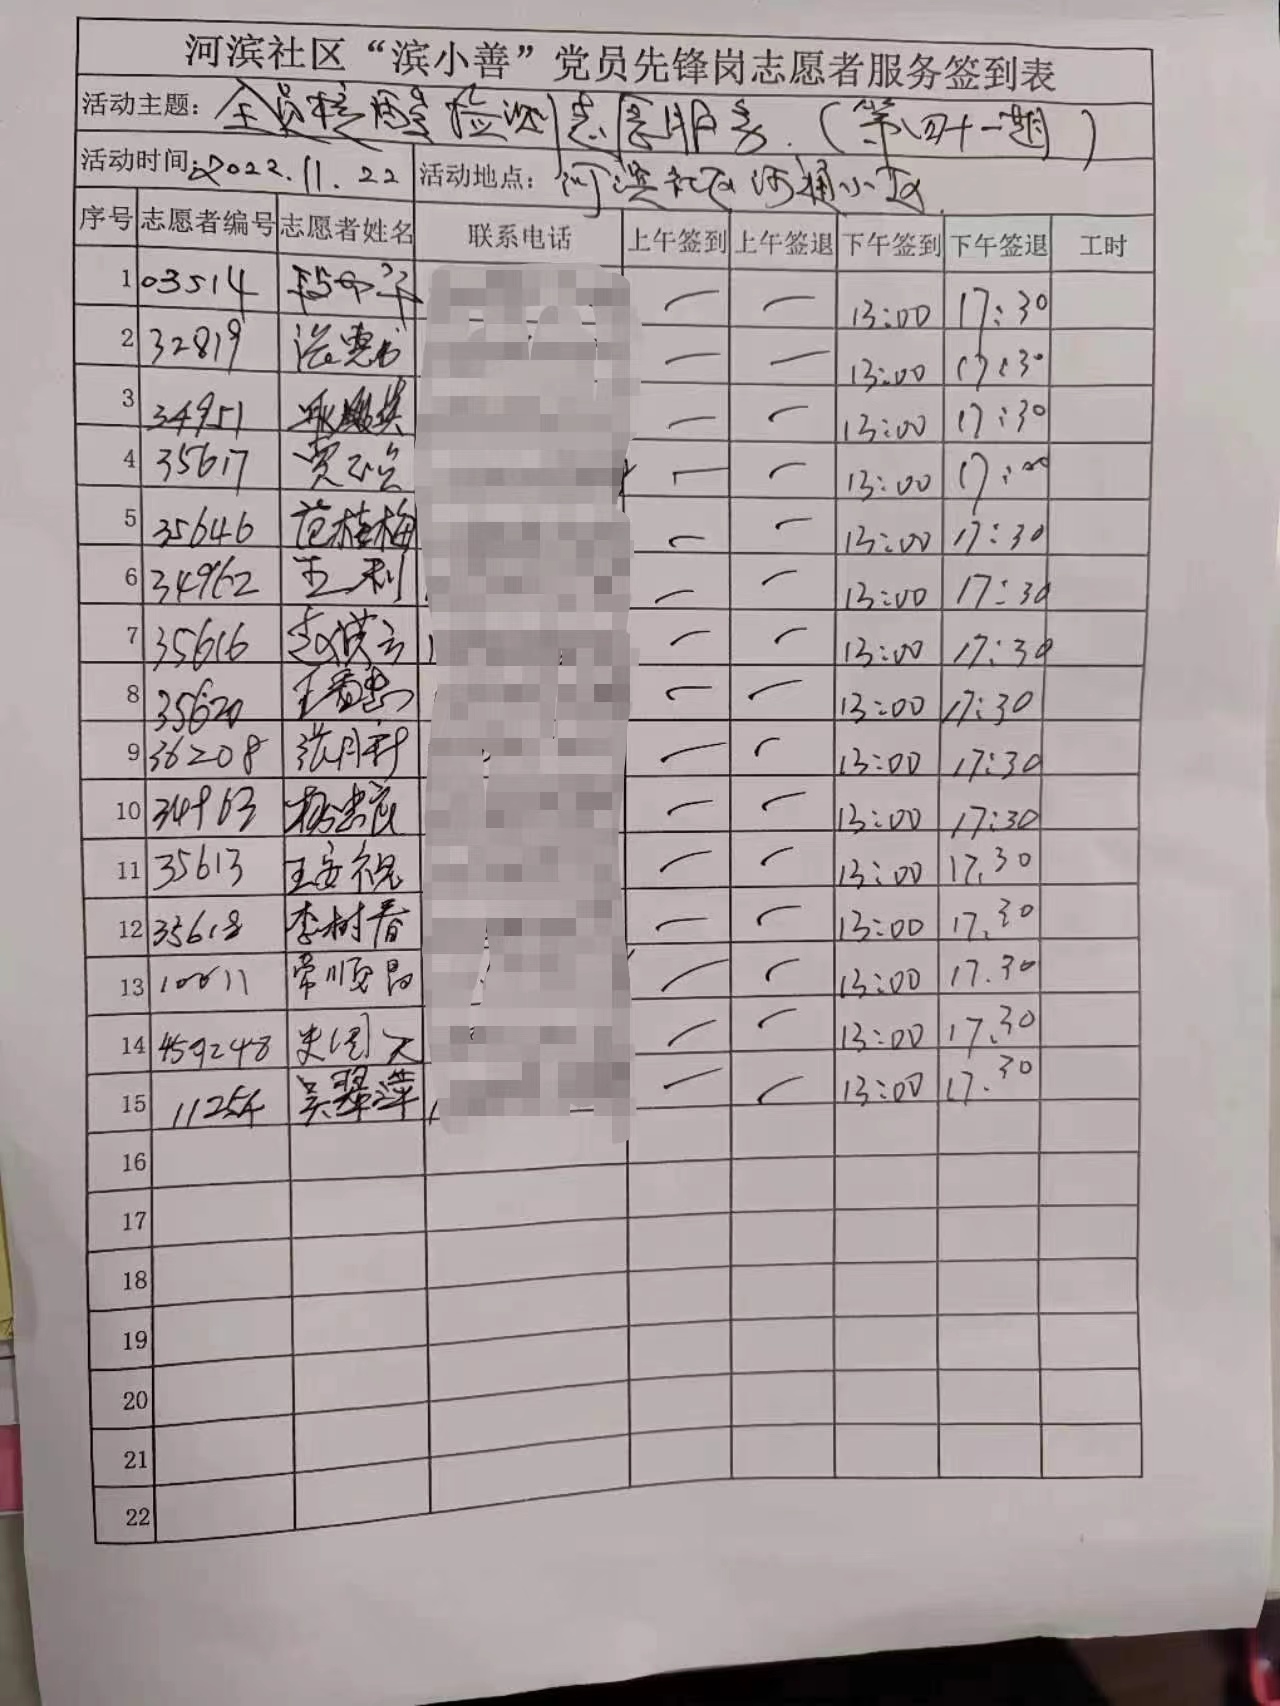 河滨社区“滨小善”党员先锋岗志愿者服务签到表
活动主题：全员核酸检测志愿服务.（第四十一期）
活动时间：2022.11.22 活动地点：河滨社区河畔小区.
序号 志愿者编号 志愿者姓名 联系电话 上午签到 上午签退 下午签到 下午签退 工时
1 03514 — — 13:00 17:30
2 32819 — — 13:00 17:30
3 34951 — — 13:00 17:30
4 35617 — — 13:00
5 35646 范桂梅 — — 13:00 17:30
6 34962 王利 — — 13:00 17:30
7 35616 — — 13:00 17:30
8 35620 — — 13:00 17:30
9 36208 张月新 — — 13:00 17:30
10 34963 杨忠良 — — 13:00 17:30
11 35613 王安祝 — — 13:00 17.30
12 35618 李树春 — — 13:00 17.30
13 10011 常顺昌 — — 13:00 17.30
14 459248 — — 13:00 17.30
15 11254 吴翠萍 — — 13:00 17.30
16
17
18
19
20
21
22